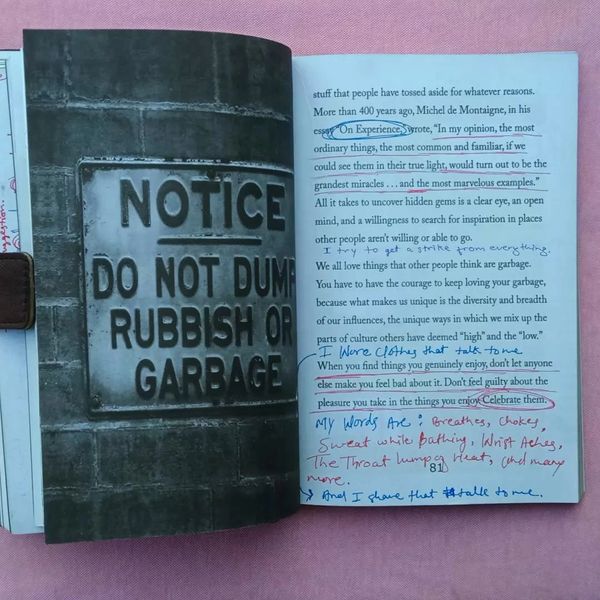 uggestion.
NOTICE
DO NOT DUMP
RUBBISH OR
GARBAGE
stuff that people have tossed aside for whatever reasons.
More than 400 years ago, Michel de Montaigne, in his
essay "On Experience," wrote, "In my opinion, the most
ordinary things, the most common and familiar, if we
could see them in their true light, would turn out to be the
grandest miracles . . . and the most marvelous examples."
All it takes to uncover hidden gems is a clear eye, an open
mind, and a willingness to search for inspiration in places
other people aren't willing or able to go.
I try to get a strike from everything.
We all love things that other people think are garbage.
You have to have the courage to keep loving your garbage,
because what makes us unique is the diversity and breadth
of our influences, the unique ways in which we mix up the
parts of culture others have deemed "high" and the "low."
I Wore Clothes that talk to me
When you find things you genuinely enjoy, don't let anyone
else make you feel bad about it. Don't feel guilty about the
pleasure you take in the things you enjoy. Celebrate them.
My Words Are: Breathes, Chokes,
Sweat while Bathing, Wrist Aches,
The Throat lump of Heat, and many
more.
81
And I share that talk to me.